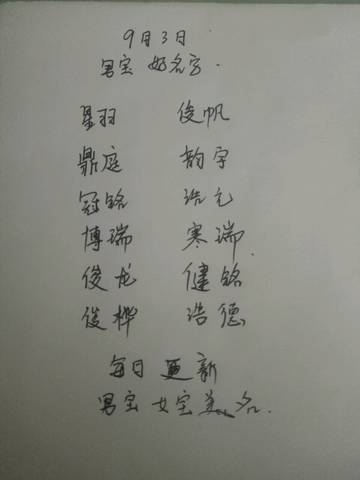 9月3日
男宝 好名字.
星羽 俊帆
鼎庭 韵宇
冠铭 浩元
博瑞 寒瑞
俊龙 健铭
俊桦 浩德
每日 更新
男宝 女宝 美名.